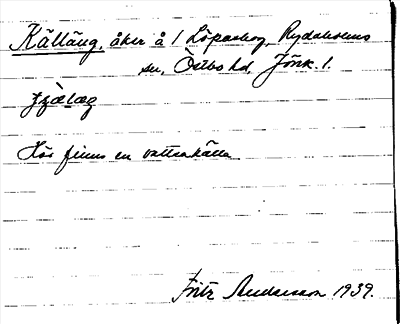 Källäng, åker å 1 Löpaskog, Rydaholms
sn, Östbo hd, Jönk. l.
Här finns en vattenkälla
Fritz Andersson 1939.